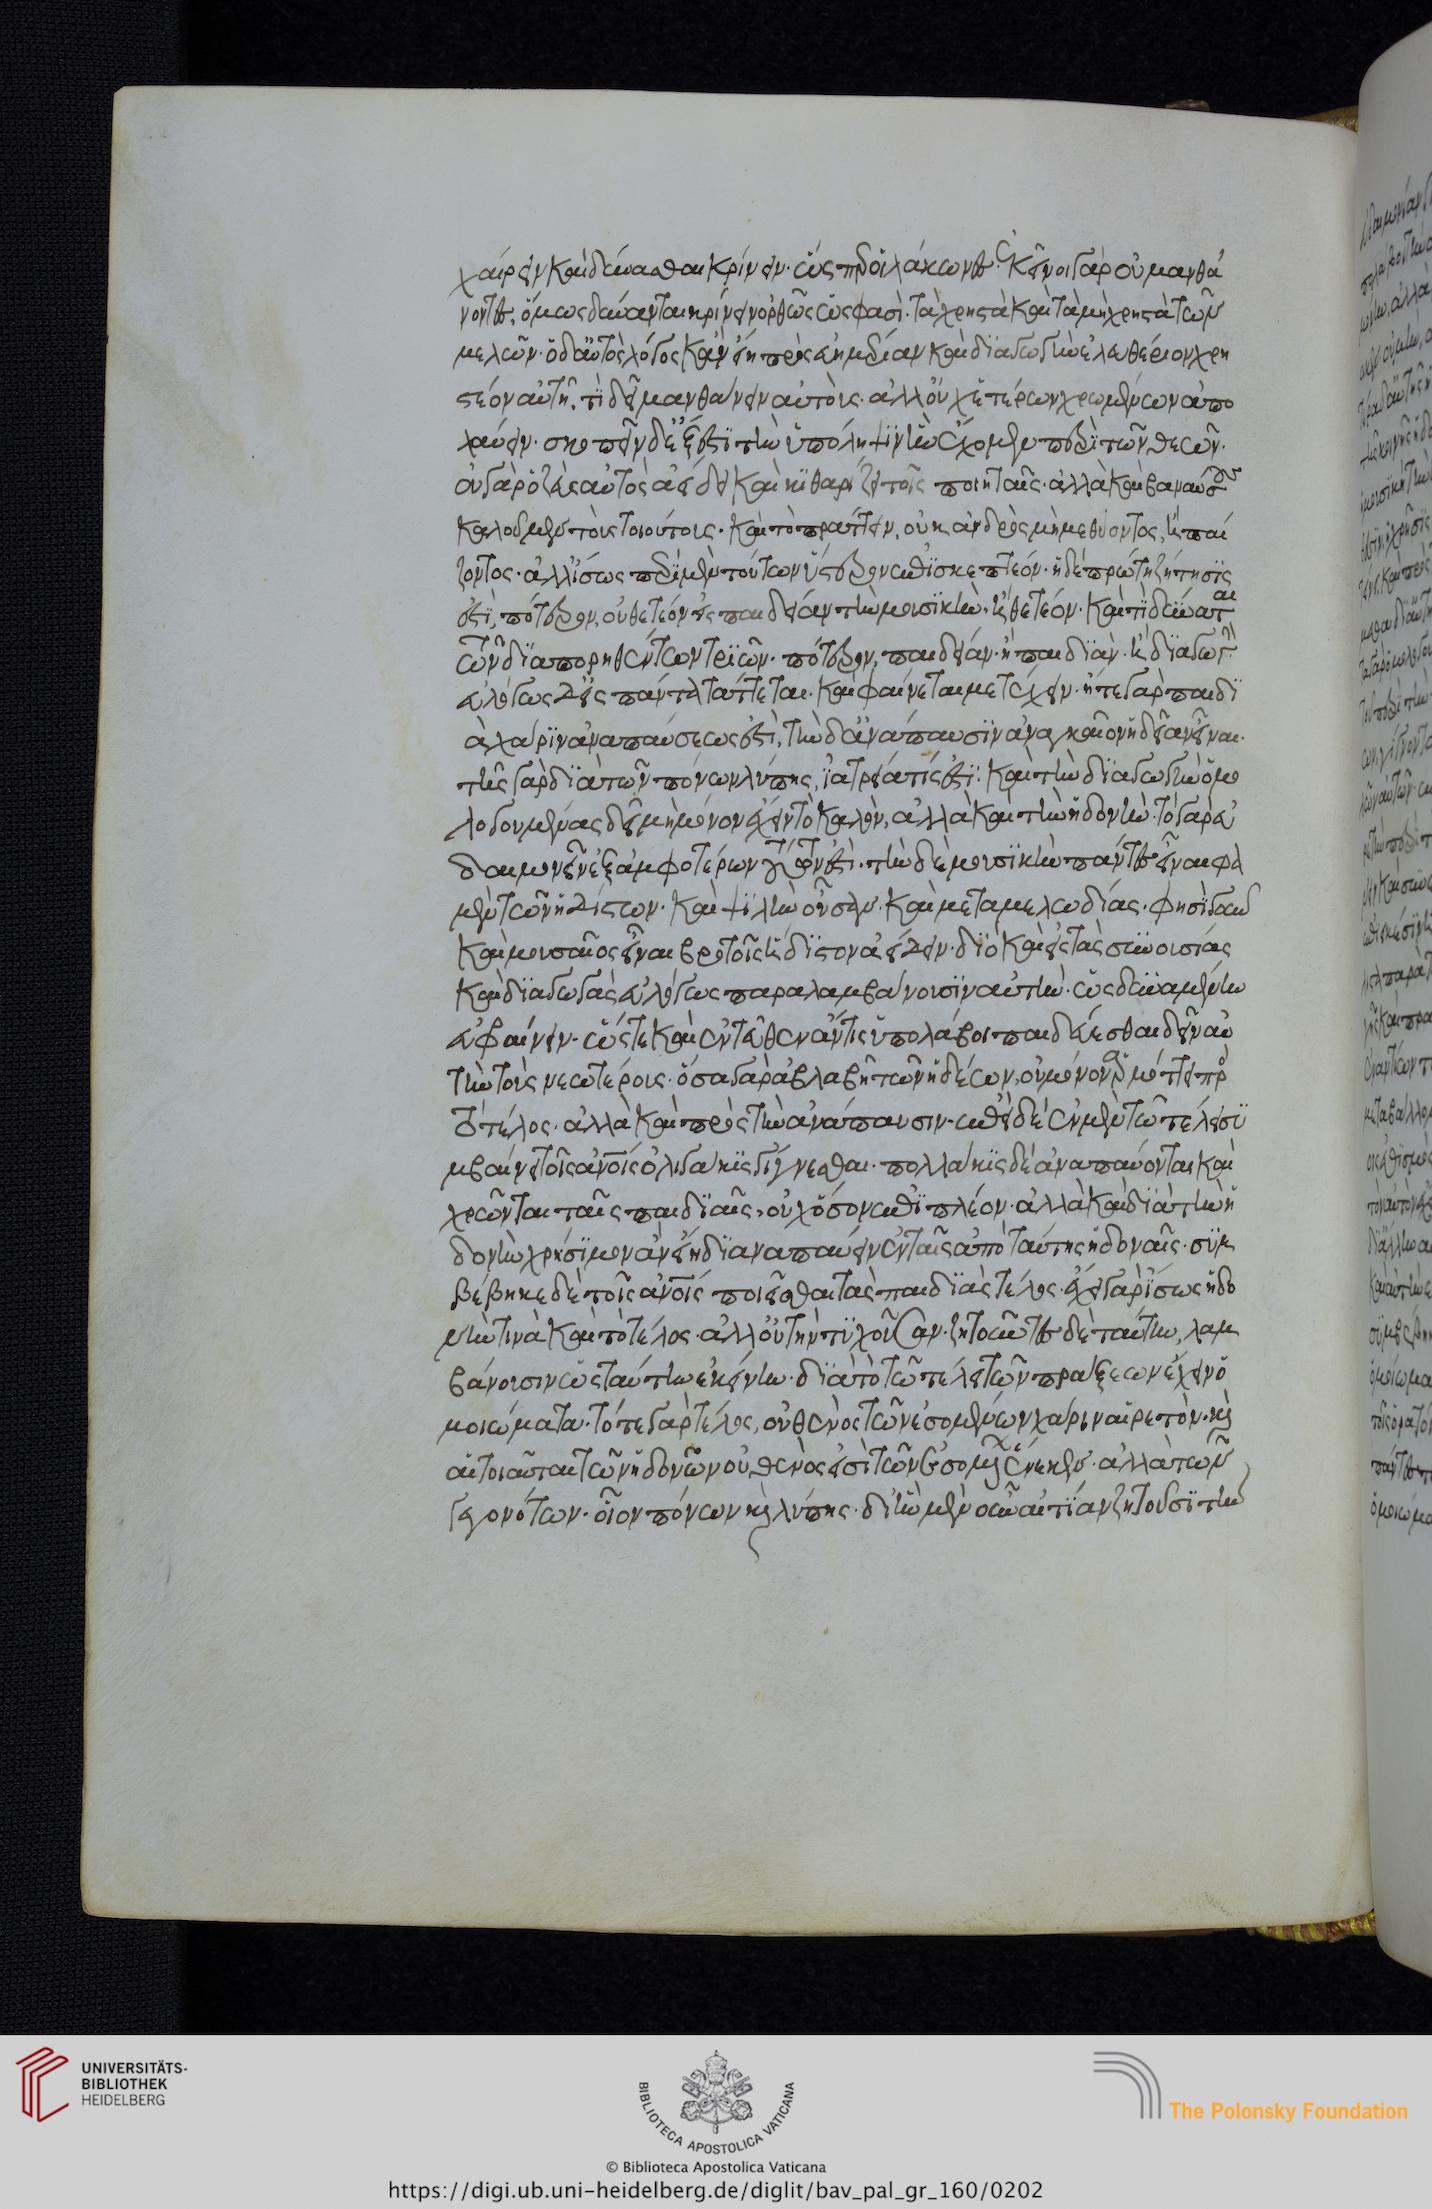 χαίρειν καὶ δύνασθαι κρίνειν· ὥσπερ οἱ λάκωνες· ἐκεῖνοι γὰρ οὐ μανθά
νοντες, ὅμως δύνανται κρίνειν ὀρθῶς ὥς φασὶ· τὰ χρηστὰ καὶ τὰ μὴ χρηστὰ τῶν
μελῶν· ὁ δ' αὐτὸς λόγος κἂν εἰ πρὸς εὐημερίαν καὶ διαγωγὴν ἐλευθέριον χρη
στέον αὐτῇ, τί δεῖ μανθάνειν αὐτοὺς· ἀλλ' οὐχ ἑτέρων χρωμένων ἀπο
λαύειν· σκοπεῖν δ' ἔξεστι τὴν ὑπόληψιν ἣν ἔχομεν περὶ τῶν θεῶν·
οὐ γὰρ ὁ ζεὺς αὐτὸς ἀείδει καὶ κιθαρίζει τοῖς ποιηταῖς· ἀλλὰ καὶ βαναύσους
καλοῦμεν τοὺς τοιούτους· καὶ τὸ πράττειν, οὐκ ἀνδρὸς μὴ μεθύοντος, ἢ παί
ζοντος· ἀλλ' ἴσως περὶ μὲν τούτων ὕστερον ἐπισκεπτέον· ἡ δὲ πρώτη ζήτησις
ἐστὶ, πότερον, οὐ θετέον εἰς παιδείαν τὴν μουσικὴν· ἢ θετέον· καὶ τί δύναται
τῶν διαπορηθέντων τριῶν· πότερον, παιδείαν· ἢ παιδιὰν· ἢ διαγωγὴν·
εὐλόγως δ' εἰς πάντα τάττεται· καὶ φαίνεται μετέχειν· ἥ τε γὰρ παιδι
ὰ χάριν ἀναπαύσεως ἐστὶ, τὴν δ' ἀνάπαυσιν ἀναγκαῖον ἡδεῖαν εἶναι·
τῆς γὰρ διὰ τῶν πόνων λύπης, ἰατρεία τίς ἐστι· καὶ τὴν διαγωγὴν ὁμο
λογουμένως δεῖ μὴ μόνον ἔχειν τὸ καλὸν, ἀλλὰ καὶ τὴν ἡδονὴν· τὸ γὰρ εὐ
δαιμονεῖν ἐξ ἀμφοτέρων τούτων ἐστὶ· τὴν δὲ μουσικὴν πάντες εἶναι φα
μὲν τῶν ἡδίστων· καὶ ψιλὴν οὖσαν· καὶ μετὰ μελωδίας· φησὶ γοῦν
καὶ μουσαῖος εἶναι βροτοῖς ἥδιστον ἀείδειν· διὸ καὶ εἰς τὰς συνουσίας
καὶ διαγωγὰς εὐλόγως παραλαμβάνουσιν αὐτὴν· ὡς δυναμένην
εὐφραίνειν· ὥστε καὶ ἐντεῦθεν ἄν τις ὑπολάβοι παιδεύεσθαι δεῖν αὐ
τὴν τοὺς νεωτέρους· ὅσα γὰρ ἀβλαβῆ τῶν ἡδέων, οὐ μόνον ἁρμόττει πρὸς
τὸ τέλος· ἀλλὰ καὶ πρὸς τὴν ἀνάπαυσιν· ἐπεὶ δ' ἐν μὲν τῷ τέλει συ
μβαίνει τοῖς ἀνοις ὀλιγάκις γίγνεσθαι· πολλάκις δὲ ἀναπαύονται καὶ
χρῶνται ταῖς παιδιαῖς, οὐχ ὅσον ἐπὶ πλέον· ἀλλὰ καὶ διὰ τὴν ἡ
δονὴν χρήσιμον ἂν εἴη διαναπαύειν ἐν ταῖς ἀπὸ ταύτης ἡδοναῖς· συμ
βέβηκε δὲ τοῖς ἀνοις ποιεῖσθαι τὰς παιδιὰς τέλος· ἔχει γὰρ ἴσως ἡδο
νήν τινα καὶ τὸ τέλος· ἀλλ' οὐ τὴν τυχοῦσαν· ζητοῦντες δὲ ταύτην, λαμ
βάνουσιν ὡς ταύτην ἐκείνην· διὰ τὸ τῷ τέλει τῶν πράξεων ἔχειν ὁ
μοιώματα· τό τε γὰρ τέλος, οὐθενὸς τῶν ἐσομένων χάριν αἱρετὸν· καὶ
αἱ τοιαῦται τῶν ἡδονῶν οὐθενὸς εἰσὶ τῶν ἐσομένων ἕνεκεν· ἀλλὰ τῶν
γεγονότων· οἷον πόνων καὶ λύπης· δι' ἣν μὲν οὖν αἰτίαν ζητοῦσι τὴν
UNIVERSITÄTS-
BIBLIOTHEK
HEIDELBERG
BIBLIOTECA APOSTOLICA VATICANA
© Biblioteca Apostolica Vaticana
The Polonsky Foundation
https://digi.ub.uni-heidelberg.de/diglit/bav_pal_gr_160/0202